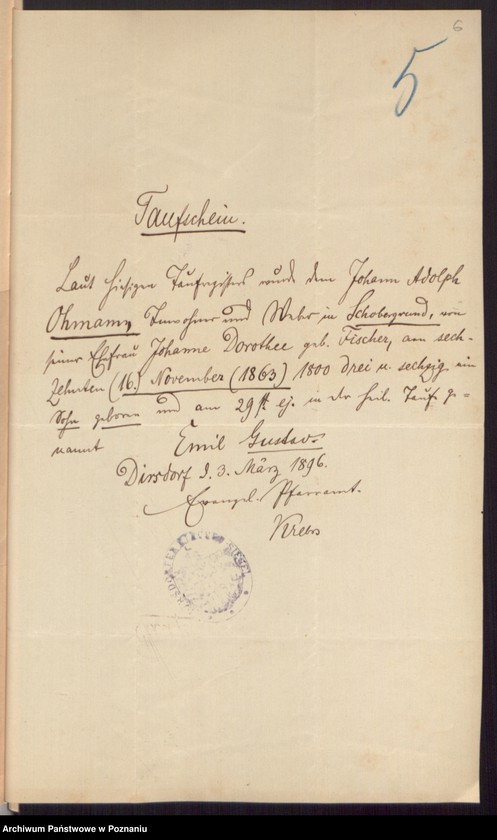 6
5
Taufschein.
Laut hiesigen Taufregisters wurde dem Johann Adolph
Ohmann, Inwohner und Weber in Schobergrund, von
seiner Ehefrau Johanne Dorothee geb. Fischer, am sech-
zehnten (16.) November (1863) 1800 drei u. sechzig ein
Sohn geboren und am 29st. ej. in der heil. Taufe ge-
nannt Emil Gustav.
Dirsdorf d. 3. März 1896.
Evangel. Pfarramt.
Krebs
Archiwum Państwowe w Poznaniu